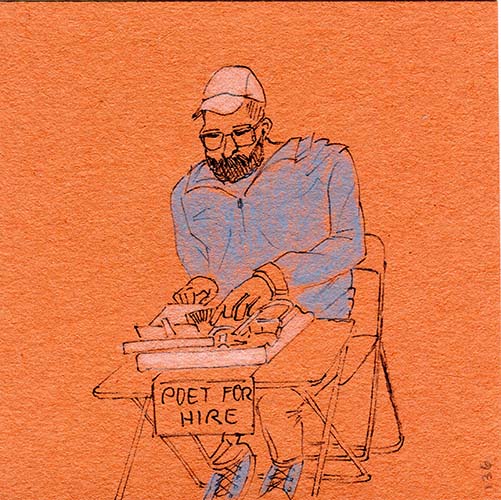 POET FOR
HIRE
136